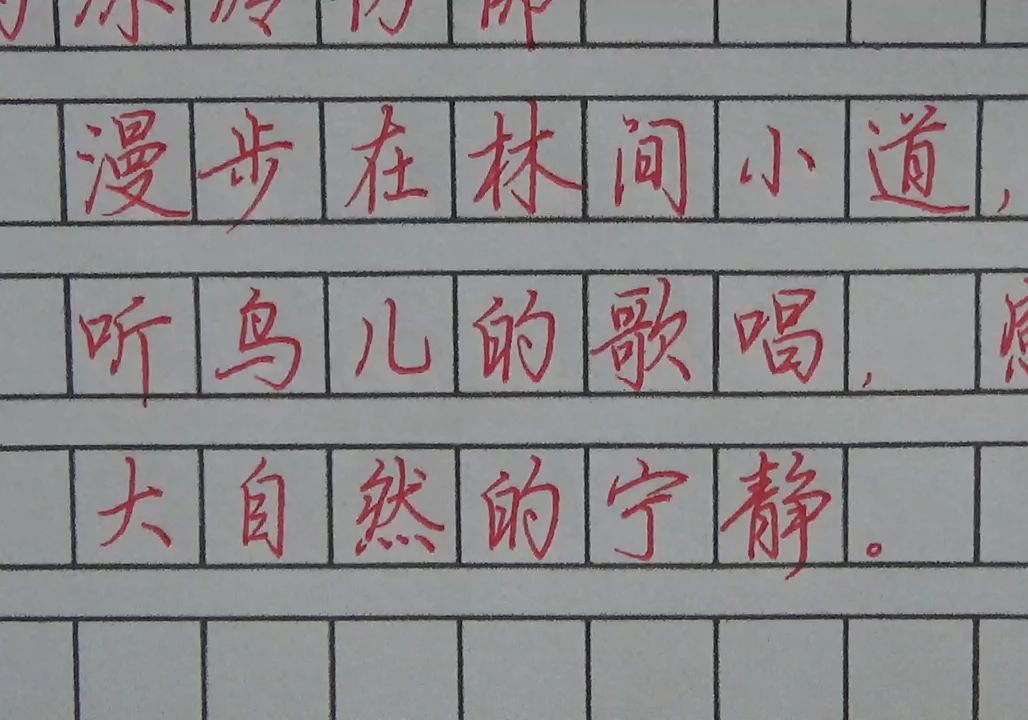 漫步在林间小道,
听鸟儿的歌唱,
大自然的宁静。